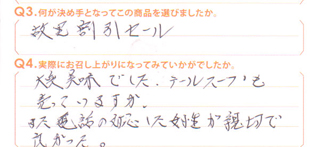 Q3.何が決め手となってこの商品を選びましたか。
割引セール
Q4.実際にお召し上がりになってみていかがでしたか。
大変美味でした.テールスープも
売っていますか.
また電話の対応した女性が親切で
良かった。